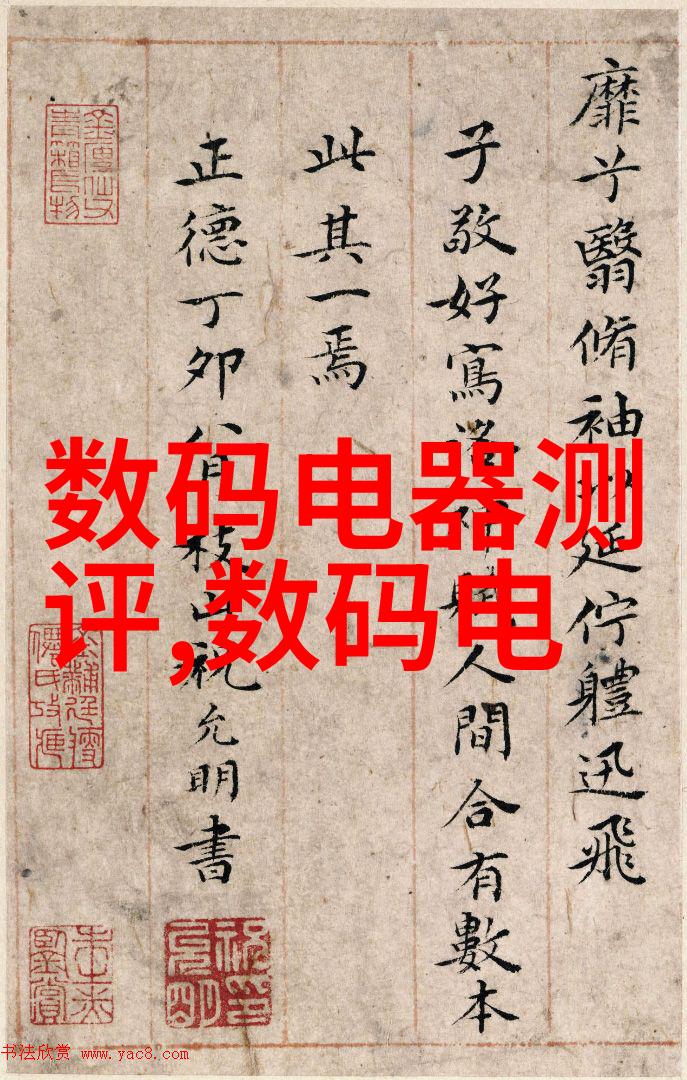 靡兮翳脩袖以延佇體迅飛
子敬好寫洛神賦人間合有數本
此其一焉
正德丁卯枝山祝允明書
数码电器测
评,数码电
书法欣赏 www.yac8.com